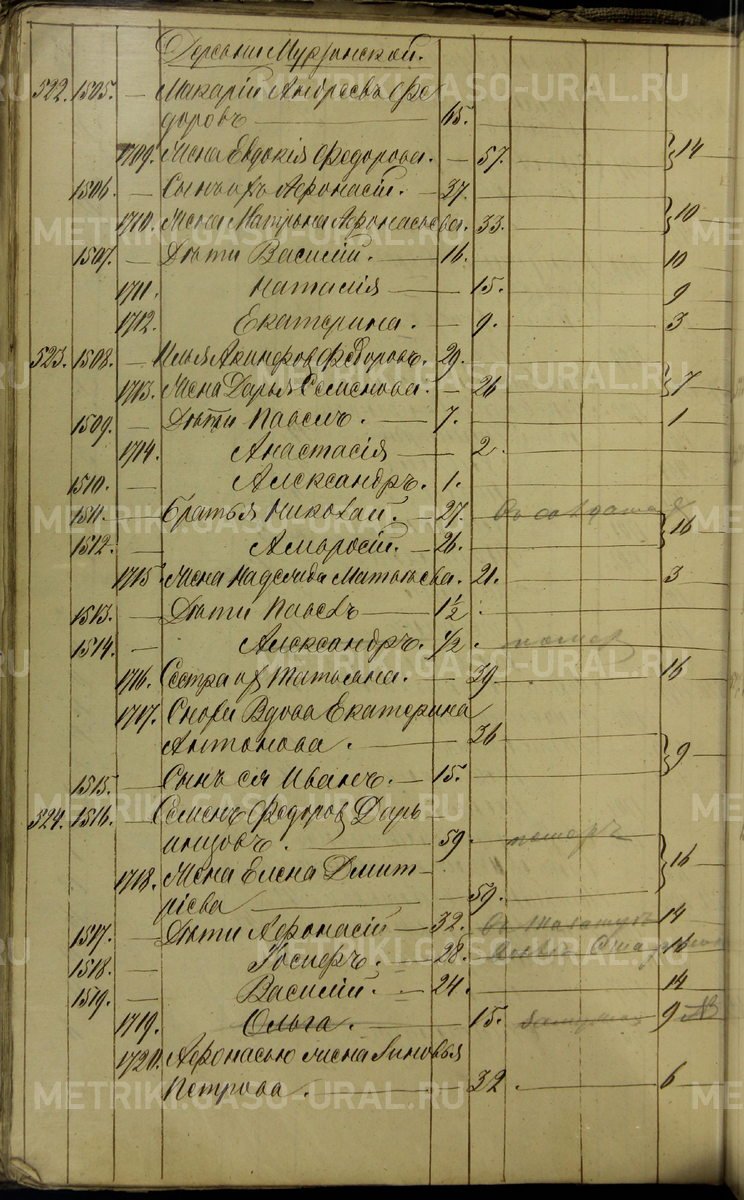 Деревни Мурзинской.
522. 1505. — Макарій Андреевъ Фе
доровъ — 65.
1709. Жена Евдокія Федорова. — 57. 14
1506. — Сынъ ихъ Афонасій. — 37.
1710. Жена Матрена Афонасьева. 33. 10
1507. — Дѣти Василій. — 16. 10
1711. Наталія — 15. 9
1712. Екатерина. — 9. 3
523. 1508. — Илья Акинфовъ Федоровъ. 29.
1713. Жена Дарья Семенова. — 26 7
1509. — Дѣти Павелъ. — 7. 1
1714. Анастасія — 2.
1510. — Александръ. 1.
1511. — Братья Николай. — 27.
1512. — Амвросій. — 26. 16
1715. Жена Надежда Матвѣева. 21. 3
1513. — Дѣти Павелъ — 1½
1514. — Александръ. ½ . помер
1716. Сестра их Татьяна. — 39 16
1717. Сноха Вдова Екатерина
Антонова. — 36
1515. — Сынъ ея Иванъ. — 15. 9
524. 1516. — Семенъ Федоров Дарь
инцовъ. — 59 . померъ
1718. Жена Елена Дмит- 16
ріева — 59.
1517. — Дѣти Афонасій — 32. 14
1518. — Іосифъ. — 28. 16
1519. — Василій. — 24. 14
1719. — Ольга. — 15. 9
1720. Афонасью жена Зиновья
Петрова. — 32. 6
METRIKI.GASO-URAL.RU